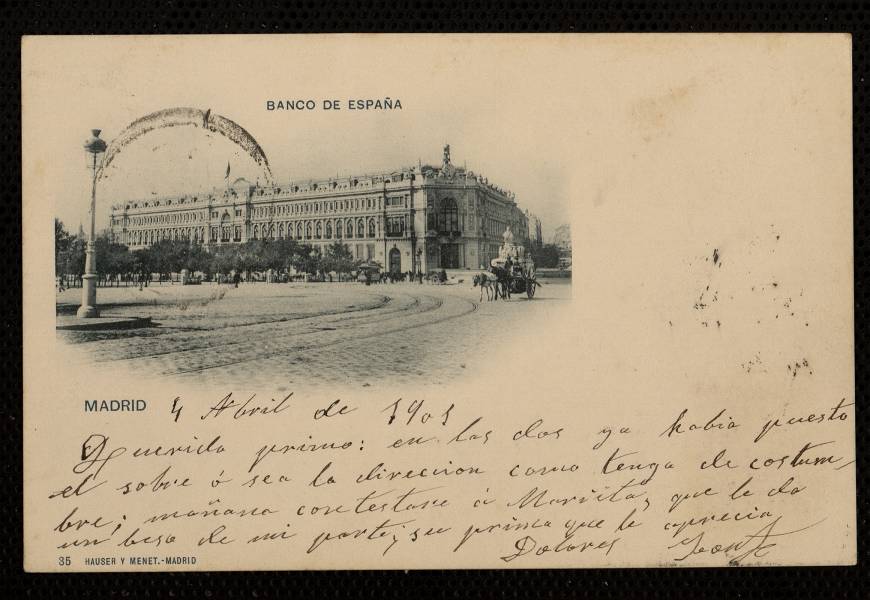 BANCO DE ESPAÑA
MADRID 4 Abril de 1901
Querido primo: en las dos ya habia puesto
el sobre ó sea la direccion como tengo de costum-
bre; mañana contestare á Mariita, que le da
un beso de mi parte; su prima que le aprecia,
Dolores
35 HAUSER Y MENET.-MADRID